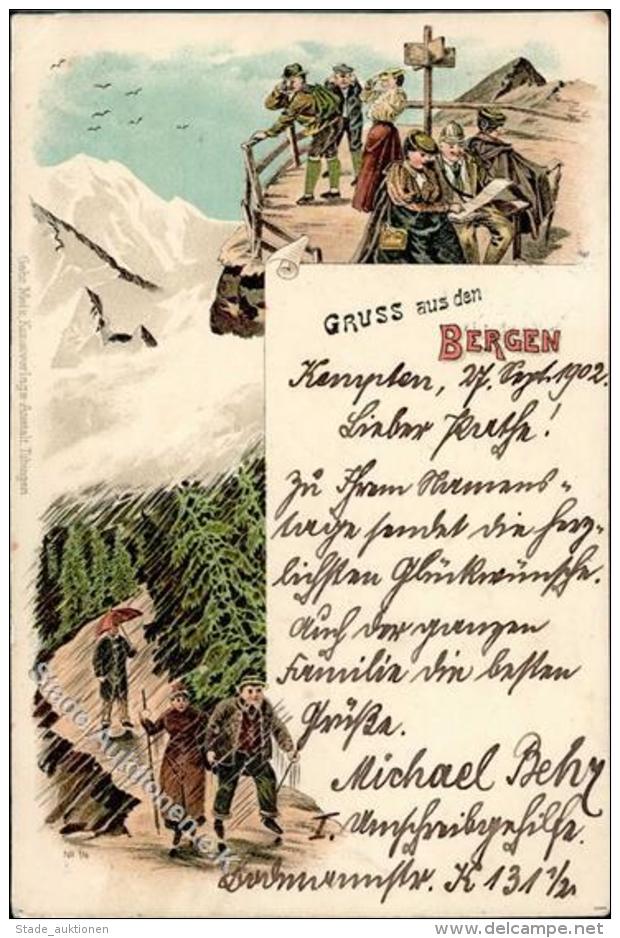 GRUSS aus den
BERGEN
Kempten, 27. Sept. 1902.
Lieber Pathe!
Zu Ihrem Namens-
tage sendet die herz-
lichsten Glückwünsche.
Auch der ganzen
Familie die besten
Grüße.
Michael
I. Umschreibgehilfe.
Bodmannstr. K 131 1/2.
Gebr. Metz, Kunstverlags-Anstalt, Tübingen
Stade-Auktionen.de
Stade_auktionen
delcampe.net